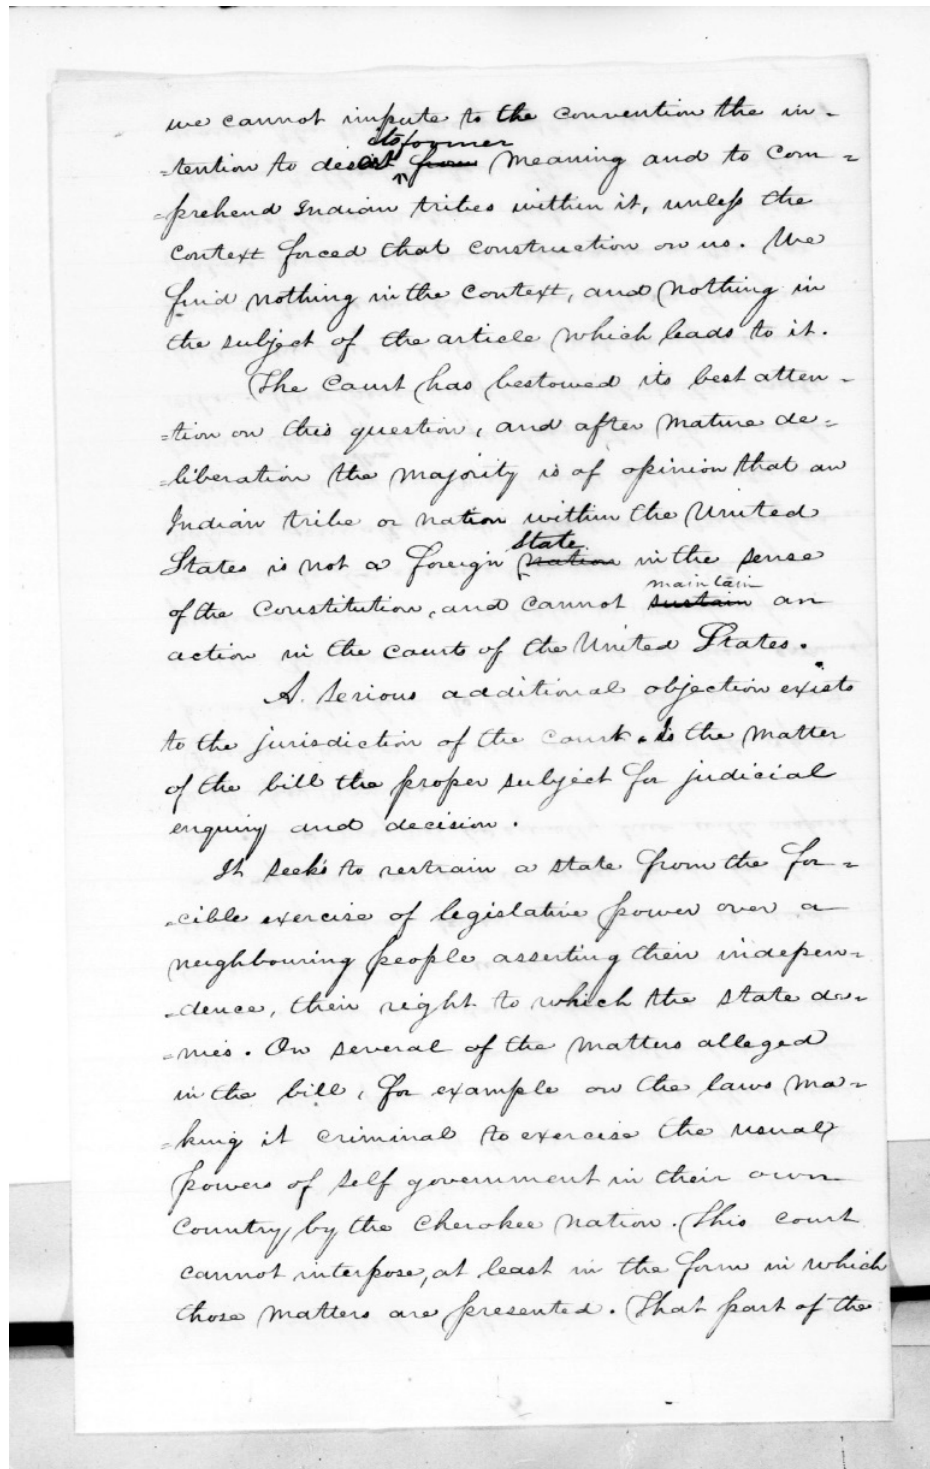 we cannot impute to the convention the in-
its former
=tention to desert from meaning and to com=
=prehend Indian tribes within it, unless the
context forced that construction on us. We
find nothing in the context, and nothing in
the subject of the article which leads to it.
The Court has bestowed its best atten-
=tion on this question, and after mature de=
=liberation the majority is of opinion that an
Indian tribe or nation within the United
State
States is not a foreign nation in the sense
maintain
of the Constitution, and cannot sustain an
action in the courts of the United States.
A. serious additional objection exists
to the jurisdiction of the court. Is the matter
of the bill the proper subject for judicial
enquiry and decision.
It seeks to restrain a state from the for=
=cible exercise of legislative power over a
neighbouring people asserting their indepen=
=dence, their right to which the state de=
=nies. On several of the matters alleged
in the bill, for example on the laws ma=
=king it criminal to exercise the usual
powers of self government in their own
Country by the Cherokee Nation. This court
cannot interpose, at least in the form in which
those matters are presented. That part of the